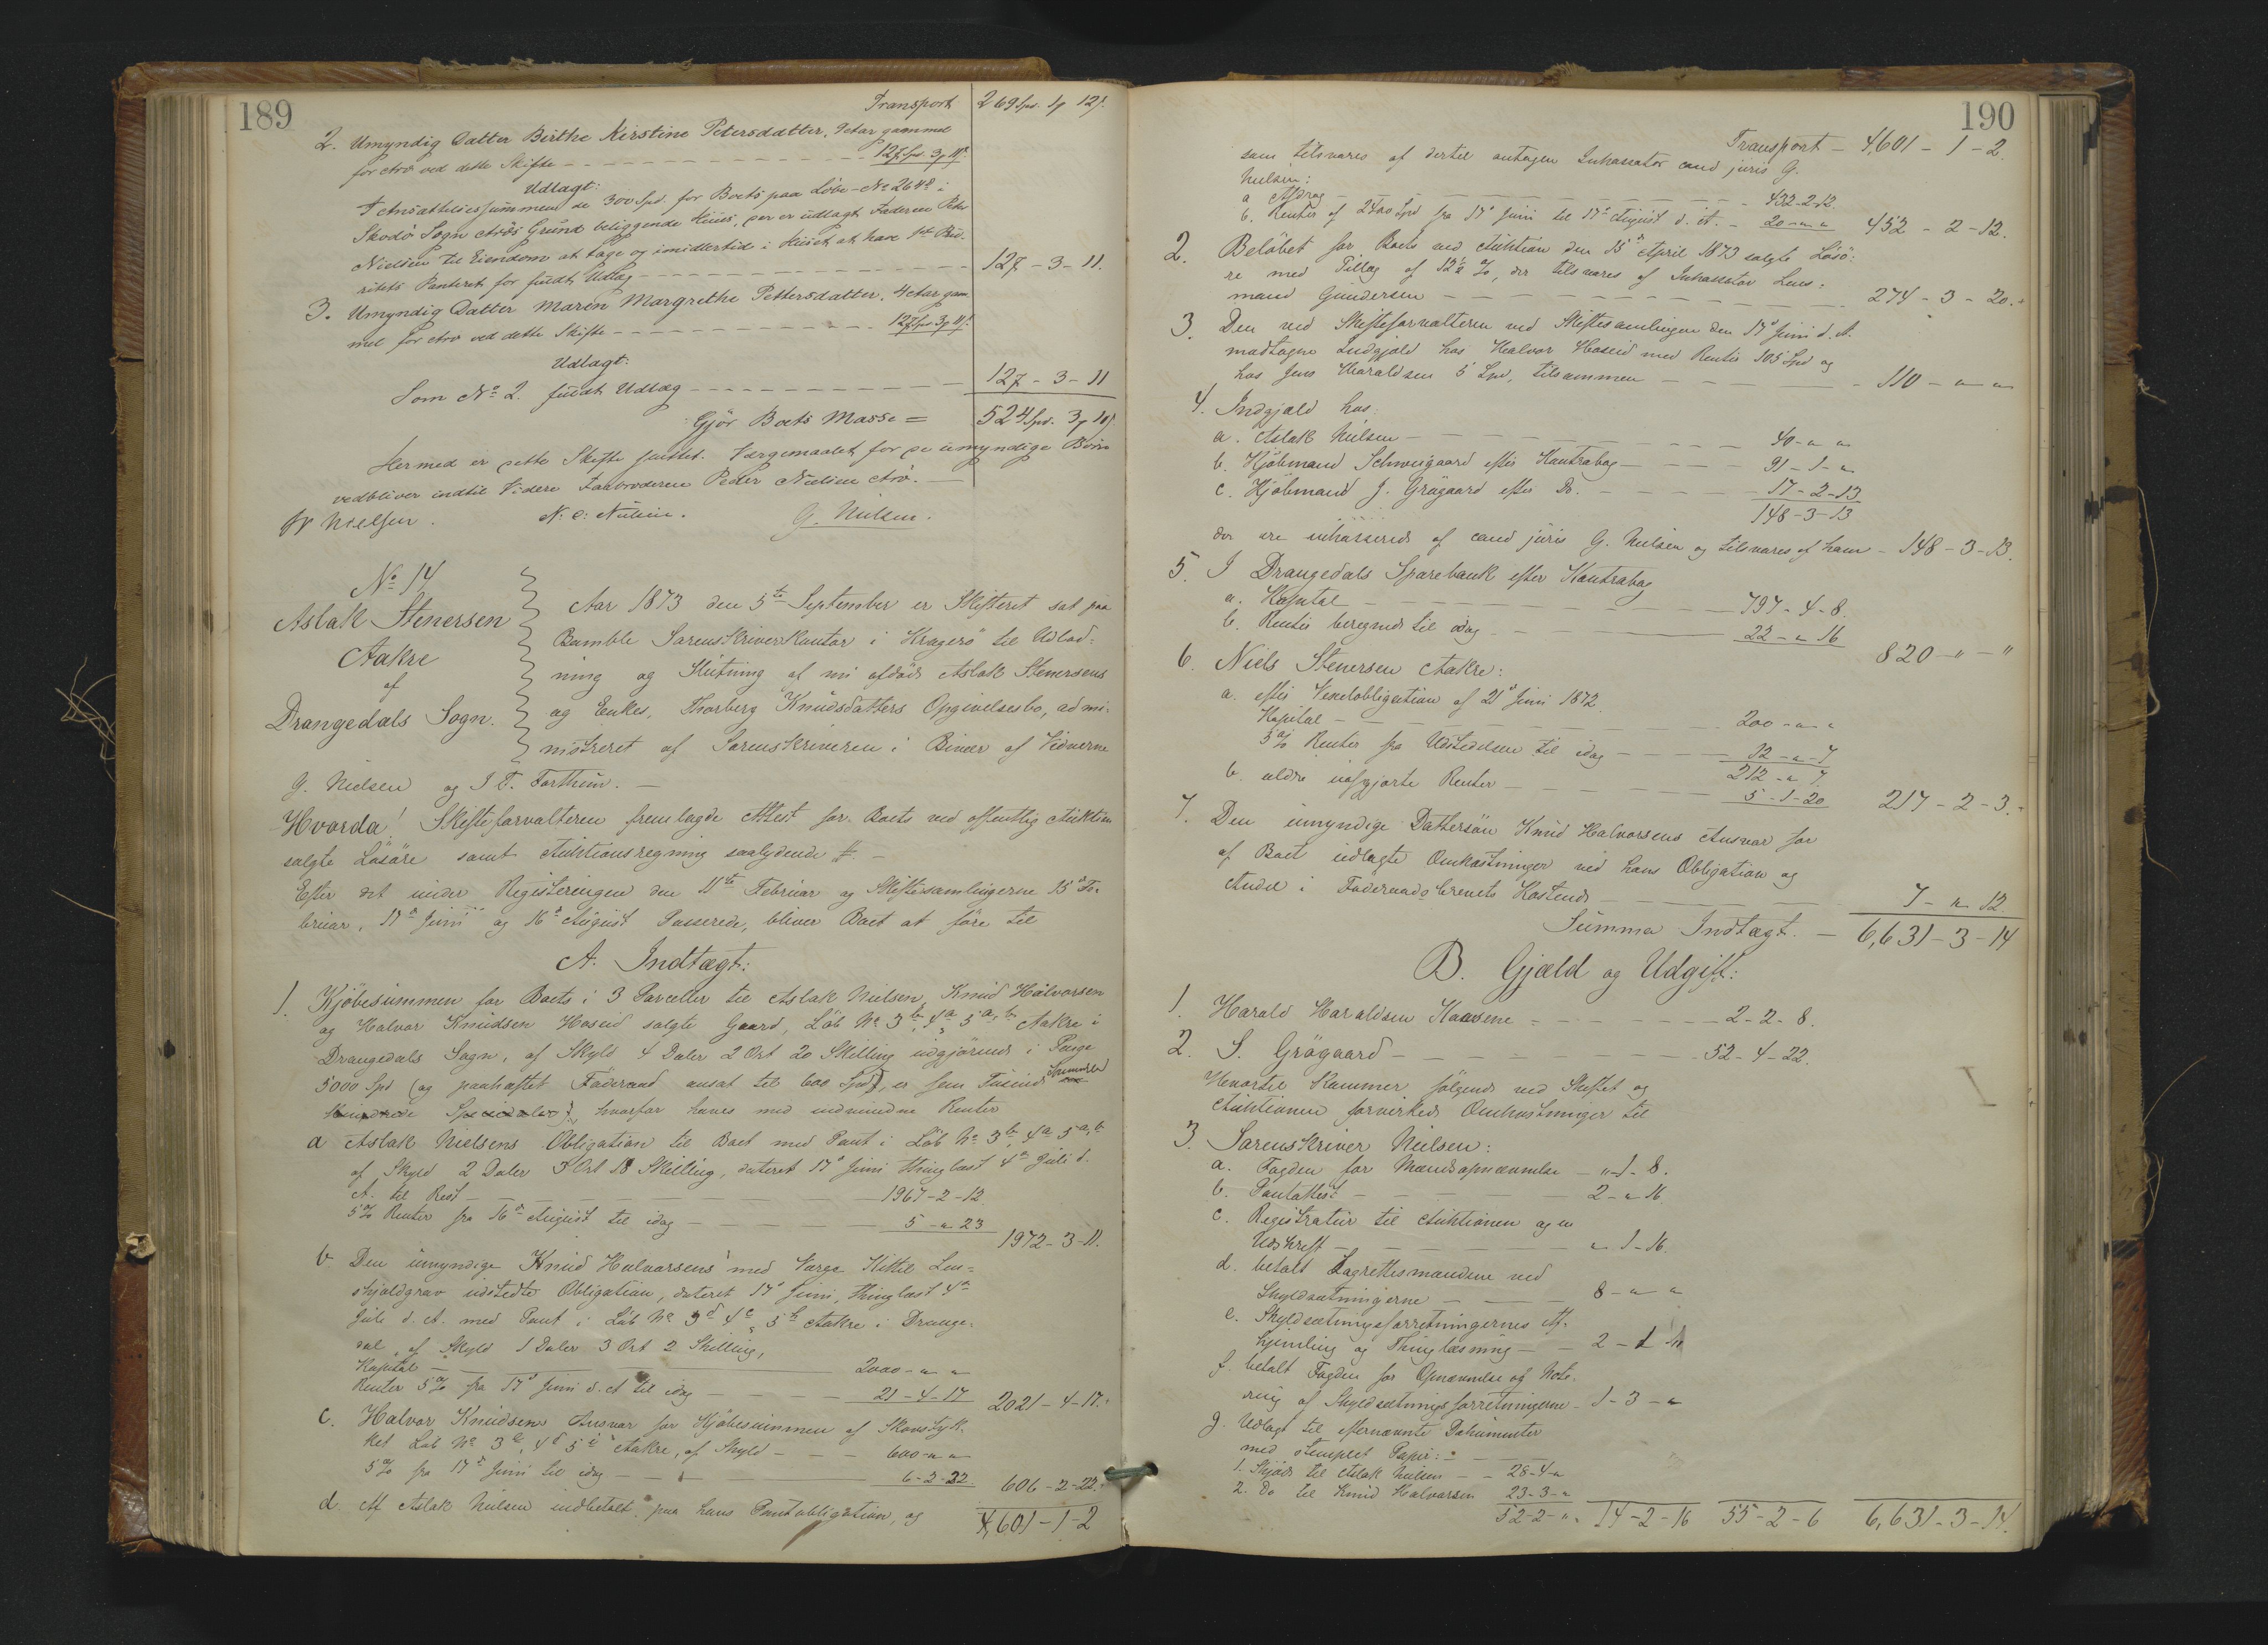 189
Transport 269 Spd. 1 # 12 ß.
2. Umyndig Datter Birthe Kirstine Petersdatter, gammel
for Arv ved dette Skifte 127 Spd. 3 # 11 ß.
Udlagt:
I Ansættelsessummen de 300 Spd. for Boets paa Löbe-No 264 i
Skodö Sogn Arös Grund beliggende Huus, der er udlagt Faderen Peder
Nielsen til Eiendom at tage og imidlertid i Huset at have 1ste Prio-
ritets Panteret for fuldt Udlæg 127 - 3 - 11.
3. Umyndig Datter Maren Margrethe Pettersdatter, 4 Aar gam-
mel for Arv ved dette Skifte 127 Spd. 3 # 11 ß.
Udlagt:
Som No 2. fuldt Udlæg 127 - 3 - 11
Gjör Boets Masse = 524 Spd. 3 # 10 ß.
Hermed er dette Skifte sluttet. Værgemaalet for de umyndige Börn
vedbliver indtil Videre Farbroderen Peder Nielsen Arö.
Nielsen. N. C. Nielsen. G. Nielsen.
No 14
Aslak Stenersen
Aakre
af
Drangedals Sogn.
Aar 1873 den 5te September er Skifteret sat paa
Bamble Sorenskriverkontor i Kragerö til Udlod-
ning og Slutning af nu afdöde Aslak Stenersens
og Enkes, Thorberg Knudsdatters Opgivelsesbo, admi-
nistreret af Sorenskriveren i Bivær af Vidnerne
G. Nielsen og I. T. Forthun.
Hvorda! Skifteforvalteren fremlagde Attest for Boets ved offentlig Auktion
solgte Lösöre samt Auktionsregning saalydende #
Efter det under Registeringen den 11te Februar og Skiftesamlingerne 15de Fe-
bruar, 17de Juni og 16de August Passerede, bliver Boet at före til
A. Indtægt:
1. Kjöbesummen for Boets i 3 Parceller til Aslak Nielsen, Knud Halvorsen
og Halvor Knudsen Hoseid solgte Gaard, Löb No 3b, 4a, 5a,b Aakre i
Drangedals Sogn, af Skyld 4 Daler 2 Ort 20 Skilling udgjörende i Penge
5000 Spd (og paahæftet Föderaad ansat til 600 Spd), er fem Tusinde Specidaler
hundrede Specidaler), hvorfor haves med indvundne Renter
a Aslak Nielsens Obligation til Boet med Pant i Löb No 3b, 4a 5a,b
af Skyld 2 Daler 3 Ort 18 Skilling, dateret 17de Juni thinglæst 4de Juli d.
A. til Rest 1967 - 2 - 12
5% Renter fra 16de August til idag 5 - " 23 1972 - 3 - 11.
b. Den umyndige Knud Halvorsens med Værge Kittil Lon-
skjoldgrav udstedte Obligation, dateret 17de Juni, thinglæst 4de
Juli d. A. med Pant i Löb No 3d 4c, 5h Aakre i Drange-
dal, af Skyld 1 Daler 3 Ort 2 Skilling,
Kapital 2000 - " "
Renter 5% fra 17de Juni d. A til idag 21 - 4 - 17 2021 - 4 - 17.
c. Halvor Knudsens Ansvar for Kjöbesummen af Skovstyk-
ket Löb No 3e, 4d 5i Aakre, af Skyld 600 - " "
5% fra 17de Juni til idag 6 - 2 - 22. 606 - 2 - 22.
d. Af Aslak Nielsen indbetalt paa hans Pantobligation, og
4,601 - 1 - 2
190
Transport - 4,601 - 1 - 2.
som tilsvares af dertil antagen Inkassator cand juris G.
Nielsen:
a Afdrag 432 - 2 - 12.
b. Renter af 2400 Spd fra 17de Juni til 17de August d. A. - 20 - " " 452 - 2 - 12.
2. Belöbet for Boets ved Auktion den 15de April 1873 solgte Lösö-
re med Tillæg af 12½ %, der tilsvares af Inkassator Lens-
mand Gundersen 274 - 3 - 20.
3. Den ved Skifteforvalteren ved Skiftesamlingen den 17de Juni d. A.
modtagne Indgjæld hos Halvor Hoseid med Renter 105 Spd og
hos Jens Haraldsen 5 Spd, tilsammen 110 - " "
4. Indgjæld hos:
a. Aslak Nielsen 40 - " "
b. Kjöbmand Schweigaard efter Kontrabog 91 - 1 - "
c. Kjöbmand J. Grögaard efter Do. 17 - 2 - 13
148 - 3 - 13
der ere inkasserede af cand juris G. Nielsen og tilsvares af ham - 148 - 3 - 13.
5. I Drangedals Sparebank efter Kontrabog
a. Kapital 797 - 4 - 8.
b. Renter beregnede til idag 22 - " 16 820 - " - "
6. Niels Stenersen Aakre:
a. efter Vexelobligation af 21de Juni 1872
Kapital 200 - " "
5% Renter fra Udstedelsen til idag 12 - " - 7
212 - " 7
b. ældre uafgjorte Renter 5 - 1 - 20 217 - 2 - 3.
7. Den umyndige Dattersön Knud Halvorsens Ansvar for
af Boet udlagte Omkostninger ved hans Obligation og
Andel i Föderaadsbrevets Kostende 7 - " 12.
Summa Indtægt. - 6,631 - 3 - 14
B. Gjæld og Udgift:
1. Harald Haraldsen Kaasene 2 - 2 - 8.
2. S. Grögaard 52 - 4 - 22.
Hvortil kommer fölgende ved Skiftet og
Auktionen forvirkede Omkostninger til
3. Sorenskriver Nielsen:
a. Fogden for Mændsopnævnelse - " - 1 - 8.
b. Pantattest 2 - " 16
c. Registratur til Auktionen og en
Udskrift " 1 - 16.
d. betalt Lagrettesmændene ved
Skyldsætningerne 8 - " "
e. Skyldsætningsforretningernes Af-
hjemling og Thinglæsning 2 - 1
f. betalt Fogden for Opnævnelse og Note-
ring af Skyldsætningsforretningerne - 1 - 3 - "
g. Udlagt til efternævnte Dokumenter
med stemplet Papir:
1. Skjöde til Aslak Nielsen 28 - 4 - "
2. Do til Knud Halvorsen 23 - 3 - "
52 - 2 - " 14 - 2 - 16 55 - 2 - 6 6,631 - 3 - 14.